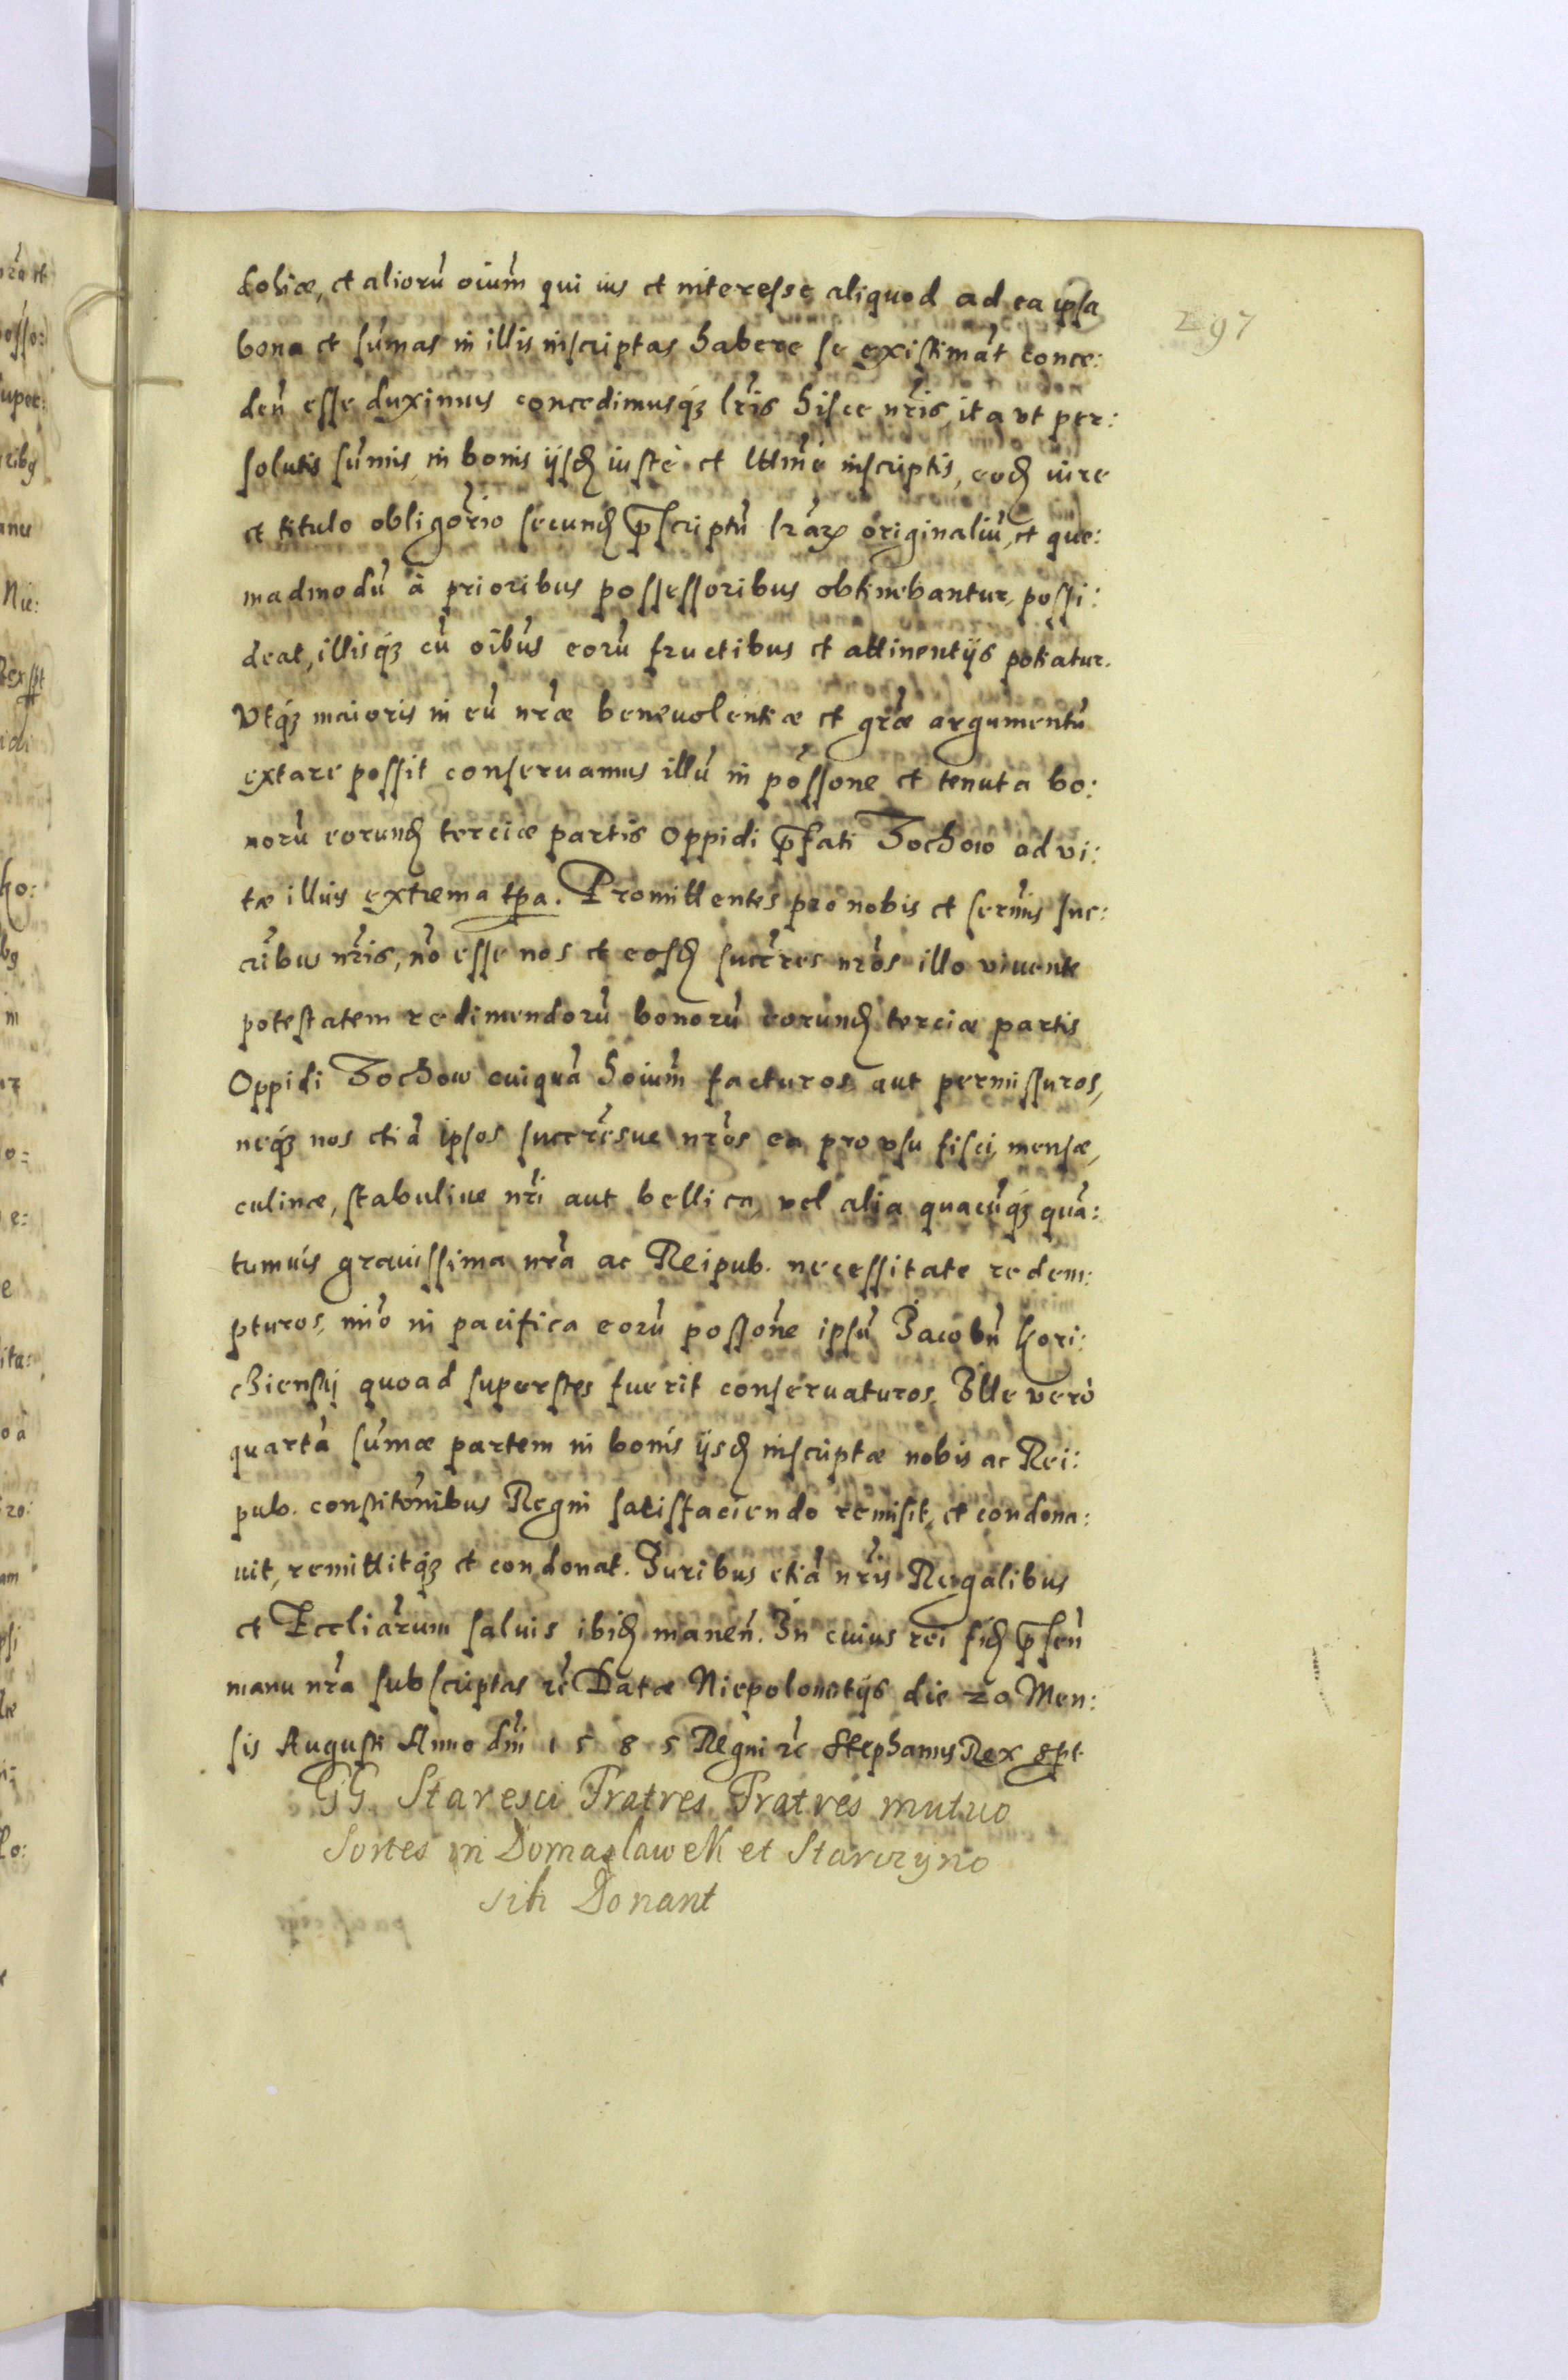 doliæ, et aliorũ oium̃ qui ius et interesse aliquod ad ea ipsa
297
bona et sum̃as in illis inscriptas habere se existimãt conce:
deñ esse duximus concedimusq́ꝫ lr̃is hisce nr̃is, ita vt per:
solutis sum̃is, in bonis ijsd iustè et ltt̃ime inscriptis, eod iure
et titulo obligor̃io secund p̃scriptũ lr̃arꝫ originaliũ, et que:
madmodũ à prioribus possessoribus obtinebantur, possi:
deat, illisq́ꝫ cũ oĩbus eorũ fructibus et attinentijs potiatur.
Vtq́ꝫ maioris in eũ nr̃æ beneuolentiæ et gr̃æ argumentũ
extare possit conseruamus illũ in posso͂ne et tenuta bo:
norũ eorund terciæ partis oppidi p̃fati Zochow ad vi:
tæ illius extrema tp̃a. Promittentes pro nobis et serm̃is suc:
cr̃ibus nr̃is, nõ esse nos et eosd succr̃es nr̃os illo viuente
potestatem redimendorũ bonorũ eorund terciæ partis
Oppidi Zochow cuiquã hoium̃ facturos aut permissuros,
neq́ꝫ nos etiã ipsos succr̃esue nr̃os ea pro vsu fisci, mensæ,
culinæ, stabuliue nr̃i aut bellica, vel alia quacũq́ꝫ quã:
tumuis grauissima nr̃a ac Reipub. necessitate redem:
pturos, imõ in pacifica eorũ posso͂ne ipsũ Jacobũ
quoad superstes fuerit conseruaturos. Ille verò
quartã sum̃æ partem in bonis ijsd inscriptæ nobis ac Rei:
pub. constito͂nibus Regni satisfaciendo remisit, et condona:
uit, remittitq́ꝫ et condonat. Juribus etiã nr̃is Regalibus
et Eccliar̃um saluis ibid maneñ. In cuius rei fid p̃señ
manu nr̃a subscriptas rc̃ Datæ Niepolomitijs die 20 Men:
sis Augusti Anno dñi 1585 Regni rc̃ Stephanus Rex sspt
GG. Staresci Fratres Fratres mutuo
Sortes in Domaslawek et Starczyno
sibi Donant